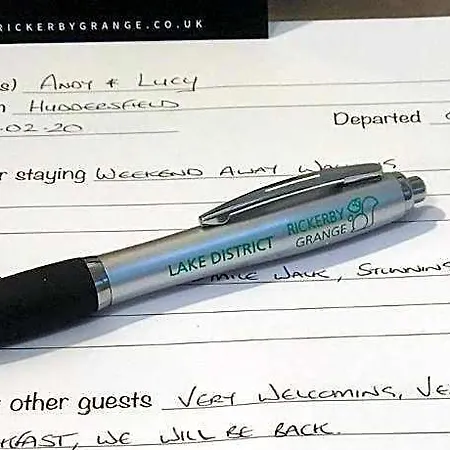 RICKERBYGRANGE.CO.UK
s) ANDY & LUCY
HUDDERSFIELD
-02-20
Departed
r staying WEEKEND AWAY
LAKE DISTRICT RICKERBY GRANGE
MILE WALK, STUNNING
other guests VERY WELCOMING, VE
KFAST, WE WILL BE BACK.